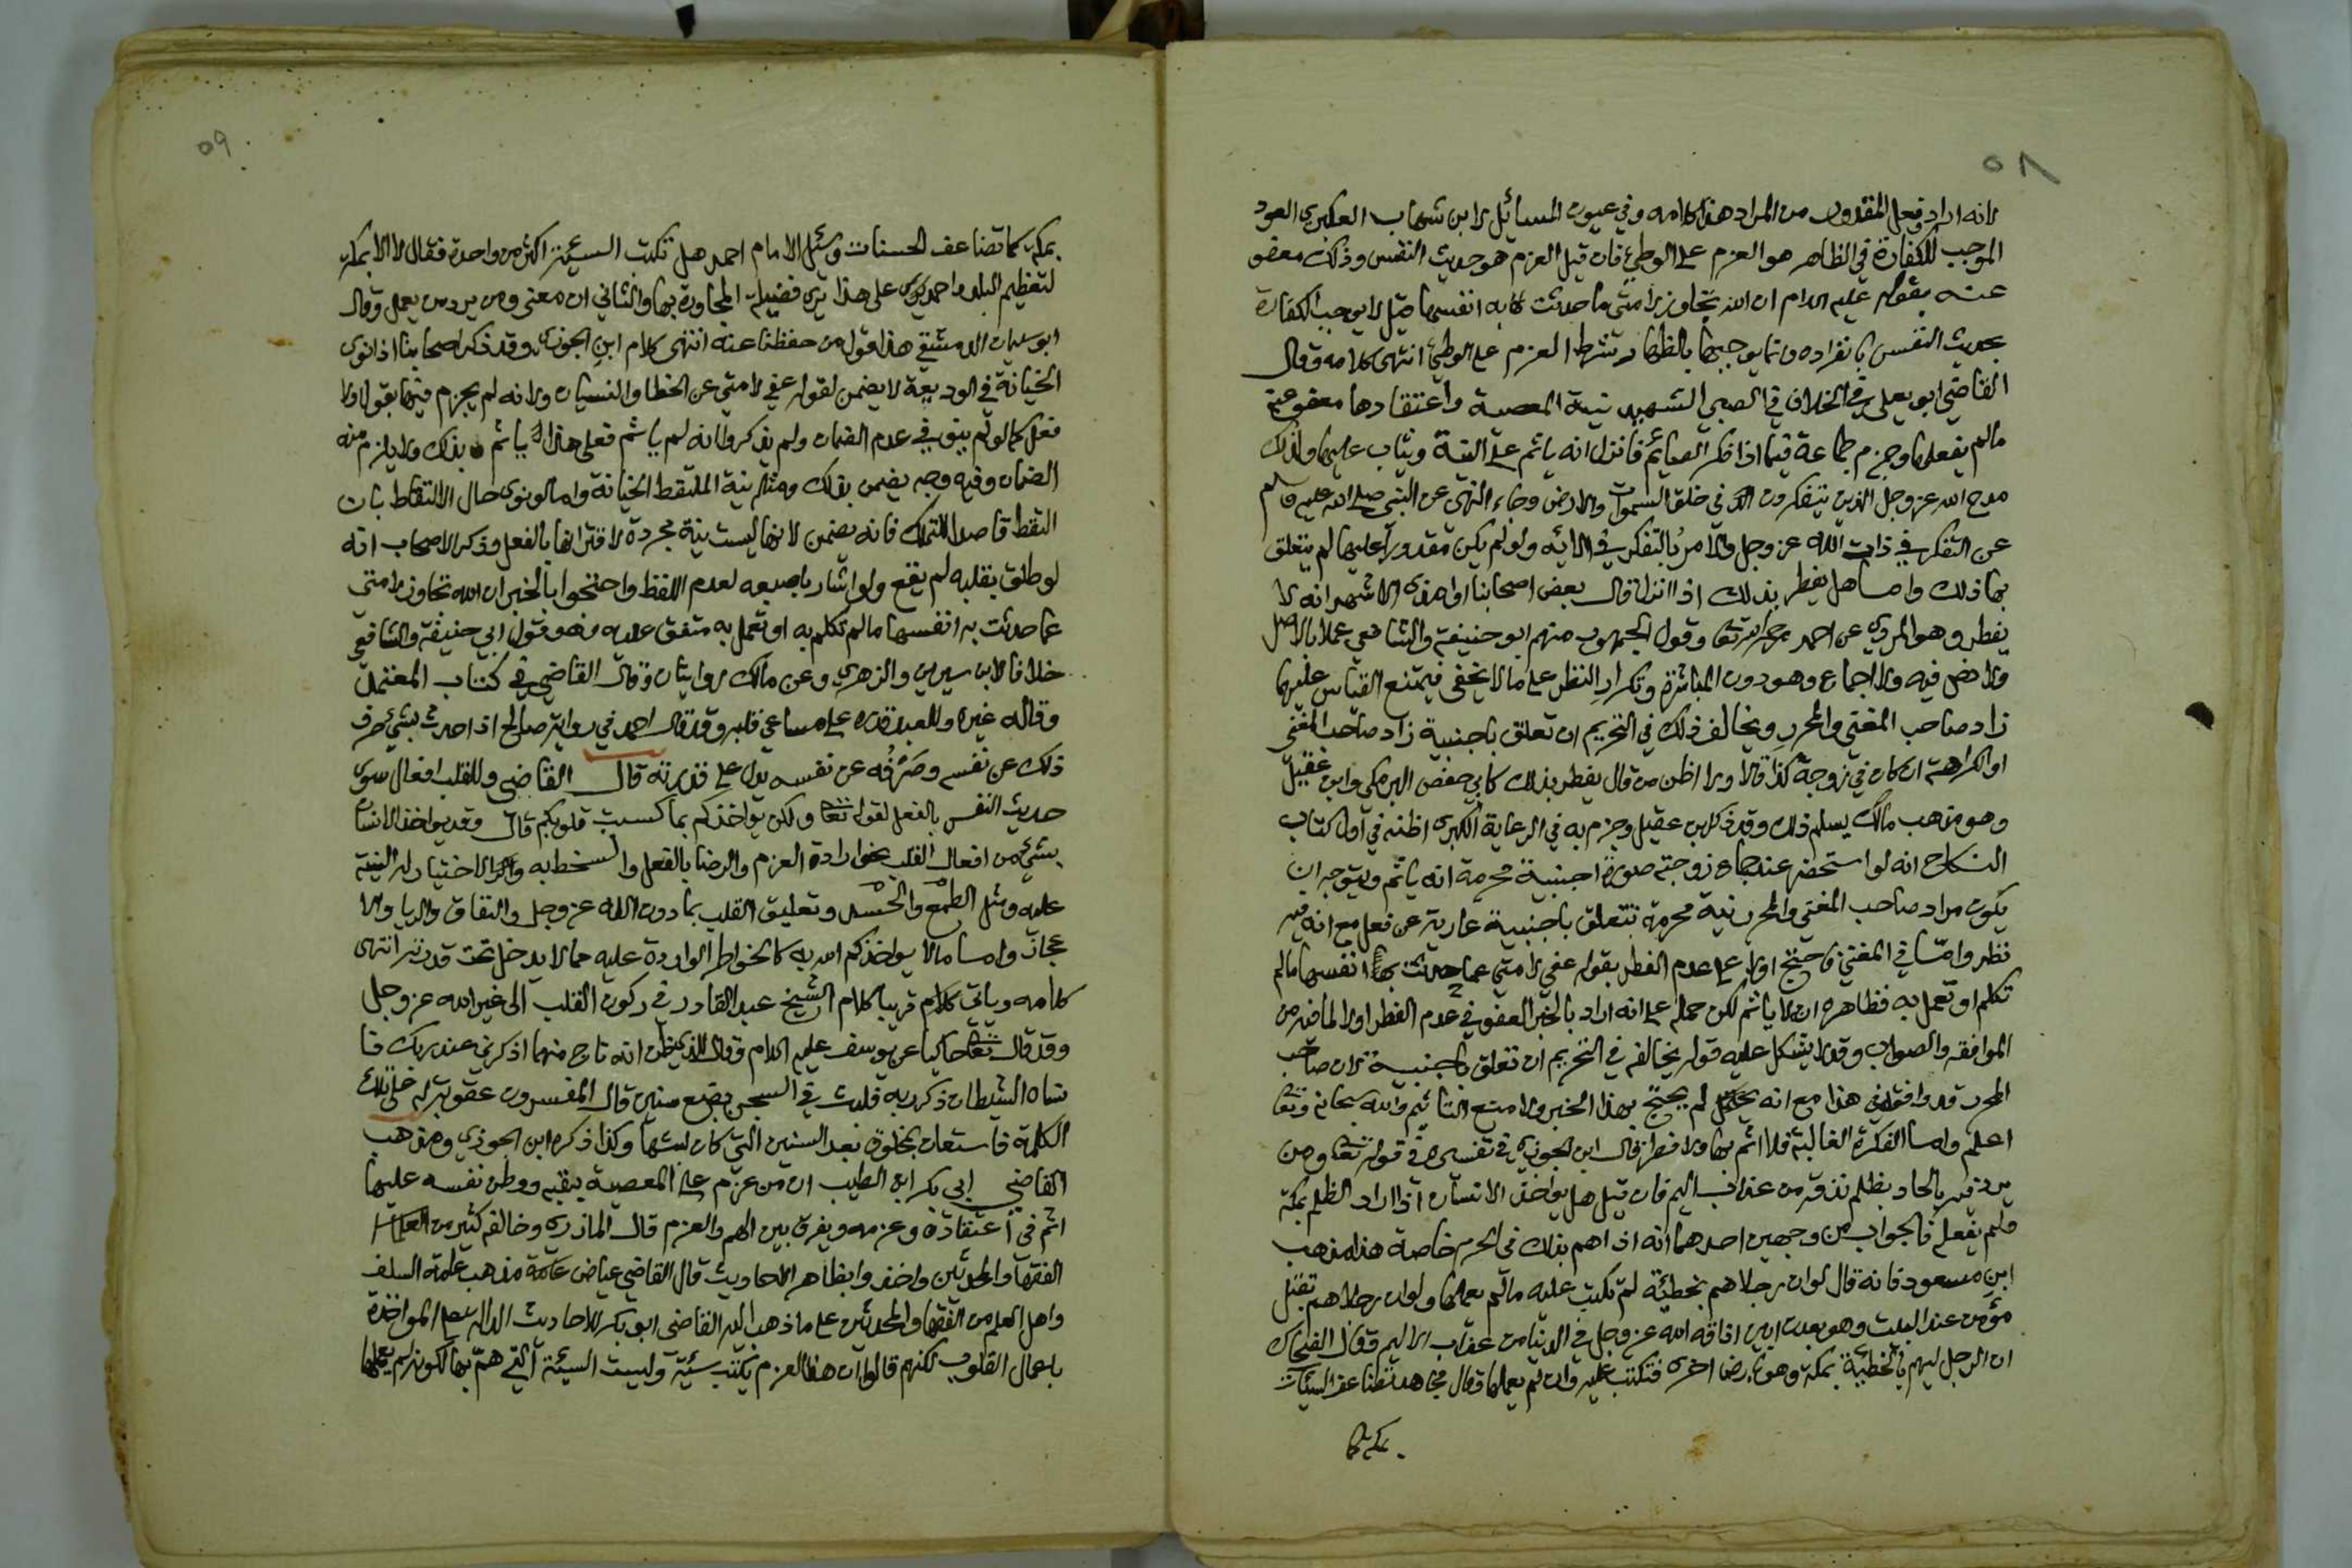 ٥٨
لانه اراد فعل المقدور من المراد هذا كلامه وفي عيون المسائل لابن شهاب العكبري العود
الموجب للكفارة في الظاهر هو العزم على الوطئ فان قيل العزم هو حديث النفس وذلك معفو
عنه بقوله عليه السلام ان الله تجاوز لامتي ما حدثت به انفسها قيل لا يوجب الكفارة
بحديث النفس بانفراده وانما يوجبها بالظهار بشرط العزم على الوطئ انتهى كلامه وقال
القاضي ابو يعلى في الخلاف في الصبي الشهيد نية المعصية واعتقادها معفو عنه
مالم يفعلها وجزم جماعة فيما اذا فكر الصائم فانزل انه ياثم على النية ويثاب عليها ولذلك
مدح الله عز وجل الذين يتفكرون في خلق السموات والارض وجاء النهي عن النبي صلى الله عليه وسلم
عن التفكر في ذات الله عز وجل والامر بالتفكر في الائه ولو لم يكن مقدورا عليها لم يتعلق
بها ذلك واما هل يفطر بذلك اذا انزل قال بعض اصحابنا الاشهر انه لا
يفطر وهو المروي عن احمد رحمه الله تعا وقول الجمهور منهم ابو حنيفة والشافعي عملا بالاصل
ولا نص فيه ولا اجماع وهو دون المباشرة وتكرار النظر على مالا يخفى فيمتنع القياس عليها
زاد صاحب المغني والمحرر ويخالف ذلك في التحريم ان تعلق باجنبية زاد صاحب المغني
او الكراهة ان كان في زوجة كذا قالا ولا اظن من قال يفطر بذلك كابي حفص البرمكي وابن عقيل
وهو مذهب مالك يسلم ذلك وقد ذكر ابن عقيل وجزم به في الرعاية الكبرى اظنه في اول كتاب
النكاح انه لو استحضر عند جماع زوجته صورة اجنبية محرمة انه ياثم ويتوجه ان
يكون مراد صاحب المغني والمحرر نية محرمة تتعلق باجنبية عارية عن فعل مع انه فيه
نظر واما في المغني فاحتج اولا على عدم الفطر بقوله عفي لامتي عما حدثت به انفسها مالم
تكلم او تعمل به فظاهره ان لا ياثم لكن حمله على انه اراد بالخبر العفو في عدم الفطر اولا لما فيه من
الموافقة والصواب وقد لا يشكل عليه قوله يخالفه في التحريم ان تعلق باجنبية لان صاحب
المحرر قد وافقه في هذا مع انه لم يحتج بهذا الخبر ولا منع التاثيم والله سبحانه وتعا
اعلم واما الفكرة الغالبة فلا اثم بها ولا فطر قال ابن الجوزي في تفسيره في قوله تعا ومن
يرد فيه بالحاد بظلم نذقه من عذاب اليم فان قيل هل يواخذ الانسان اذا اراد الظلم بمكة
ولم يفعله فالجواب من وجهين احدهما انه اذا هم بذلك في الحرم خاصة هذا مذهب
ابن مسعود فانه قال لو ان رجلا هم بخطيئة لم تكتب عليه مالم يعملها ولو ان رجلا هم بقتل
مؤمن عند البيت وهو بعدن ابين اذاقه الله عز وجل في الدنيا من عذاب الاليم وقال الضحاك
ان الرجل ليهم بالخطيئة بمكة وهو بارض اخرى فتكتب عليه وان لم يعملها وقال مجاهد تضاعف السيئات
بمكة كما
٥٩
بمكة كما تضاعف الحسنات وسئل الامام احمد هل تكتب السيئة اكثر من واحدة فقال لا الا بمكة
لتعظيم البلد واحمد على هذا يرى فضيلة المجاورة بها والثاني ان معنى ومن يرد من يعمل وقال
ابو سليمان الدمشقي هذا قول من حفظنا عنه انتهى كلام ابن الجوزي وقد ذكر اصحابنا اذا نوى
الخيانة في الوديعة لا يضمن لقوله عفي لامتي عن الخطا والنسيان ولانه لم يجزم فيها بقول ولا
فعل كما لو لم ينو في عدم الضمان ولم يذكروا انه لم ياثم فعلى هذا لا ياثم بذلك ولا يلزم منه
الضمان وفيه وجه يضمن بذلك ومثله نية الملتقط الخيانة واما لو نوى حال الالتقاط بان
التقط قاصدا للتملك فانه يضمن لانها ليست نية مجردة لاقترانها بالفعل وذكر الاصحاب انه
لو طلق بقلبه لم يقع ولو اشار باصبعه لعدم اللفظ واحتجوا بالخبر ان الله تجاوز لامتي
عما حدثت به انفسها مالم تتكلم به او تعمل به متفق عليه وهو قول ابي حنيفة والشافعي
خلافا لابن سيرين والزهري وعن مالك روايتان وقال القاضي في كتاب المعتمد
وقاله غيره وللعبد قدرة على مساعي قلبه وقد قال احمد في رواية صالح اذا حدث بشئ صرف
ذلك عن نفسه وصرفه عن نفسه يدل على قدرته قال القاضي وللقلب افعال سوى
حديث النفس بالفعل لقوله تعا ولكن يواخذكم بما كسبت قلوبكم قال وقد يواخذ الانسان
بشئ من افعال القلب نحو ارادة العزم والرضا بالفعل والسخط به والاختيار له النية
عليه ومثل الطمع والحسد وتعليق القلب بما دون الله عز وجل والنفاق والريا والا
عجاب واما مالا يواخذكم الله به كالخواطر الواردة عليه مما لا يدخل تحت قدرته انتهى
كلامه وياتي كلام قريبا كلام الشيخ عبد القادر في ركون القلب الى غير الله عز وجل
وقد قال تعا حاكيا عن يوسف عليه السلام وقال للذي ظن انه ناج منهما اذكرني عند ربك فا
نساه الشيطان ذكر ربه فلبث في السجن بضع سنين قال المفسرون عقوبة له على تلك
الكلمة فاستعان بمخلوق بعد السنين التي كان لبثها وكذا ذكره ابن الجوزي ومذهب
القاضي ابي بكر ابن الطيب ان من عزم على المعصية بقلبه ووطن نفسه عليها
اثم في اعتقاده وعزمه ويفرق بين الهم والعزم قال المازري وخالفه كثير من العلماء
الفقها والمحدثين واخذوا بظاهر الاحاديث قال القاضي عياض عامة مذهب علمه السلف
واهل العلم من الفقها والمحدثين على ما ذهب اليه القاضي ابو بكر للاحاديث الدالة على المواخذة
باعمال القلوب لكنهم قالوا ان هذا العزم يكتب سيئة وليست السيئة التي هم بها لكونه لم يعملها